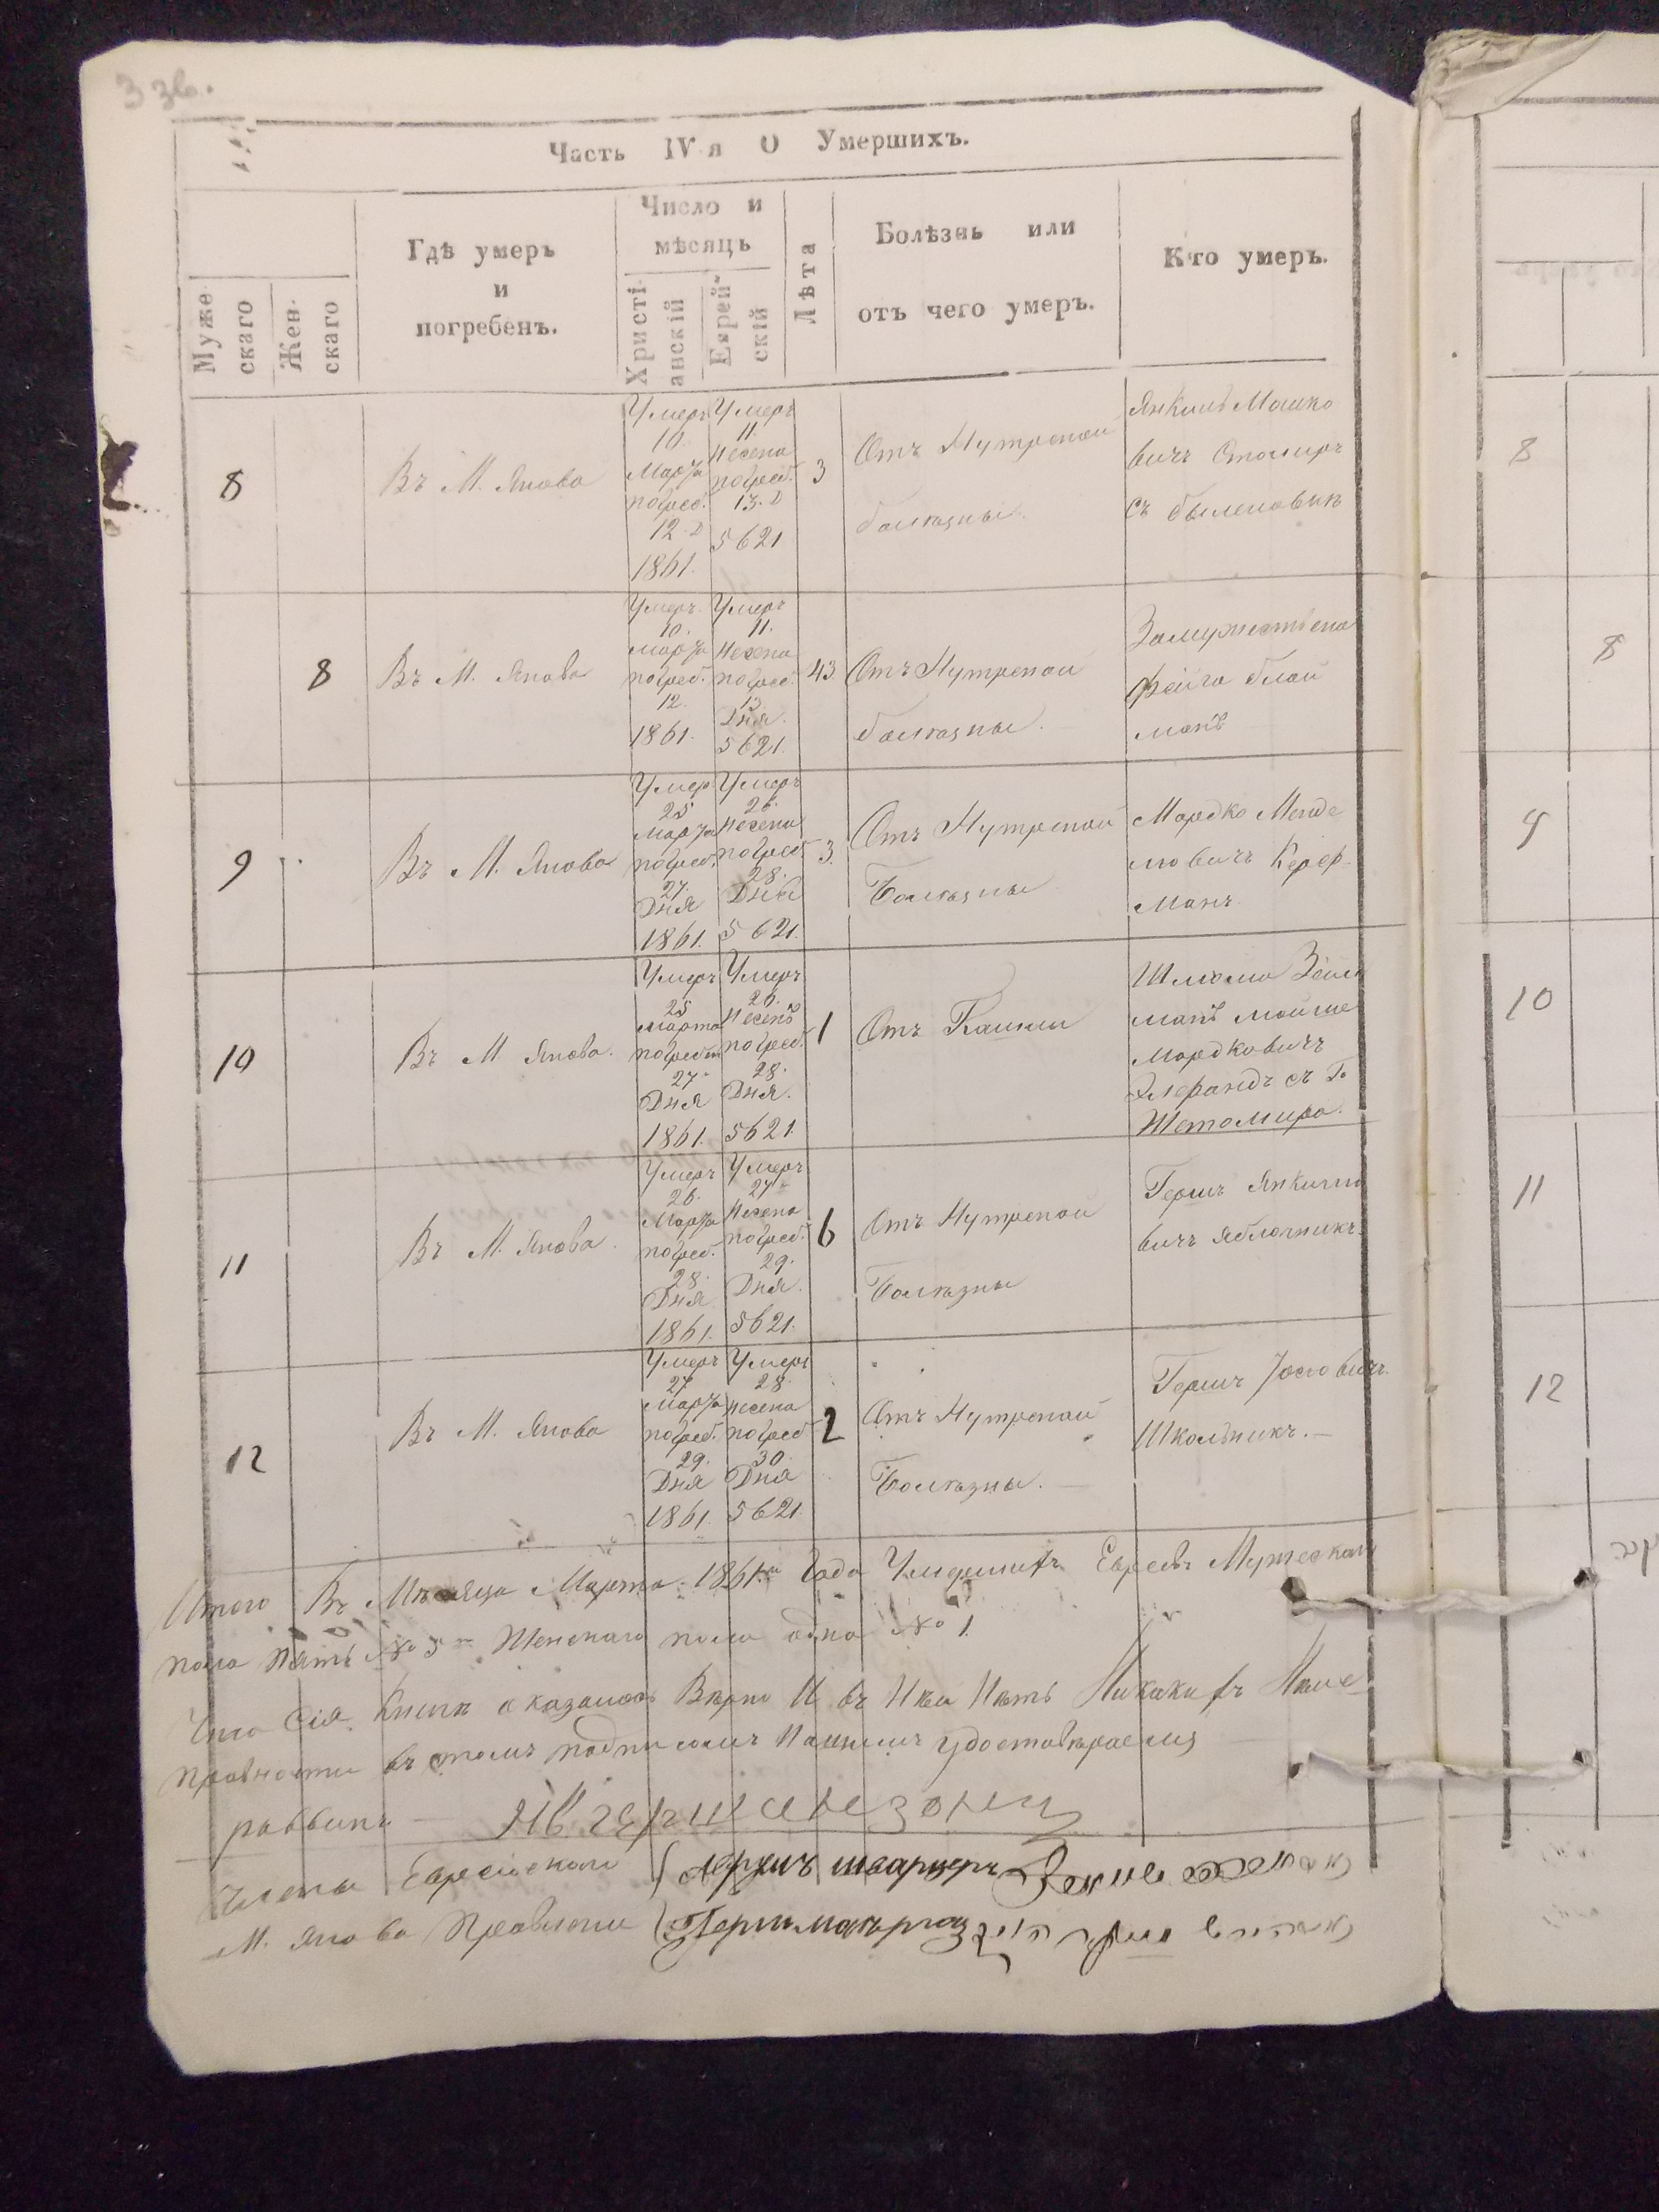 3 зв.
Часть IV я О Умершихъ.
Муже
скаго
Жен-
скаго
Гдѣ умеръ
и
погребенъ.
Число и
мѣсяцъ
Христі-
анскій
Еврей-
скій
Лѣта
Болѣзнь или
отъ чего умеръ.
Кто умеръ.
8
Въ М. Янова
Умеръ
10.
Марта
погреб.
12. д
1861.
Умеръ
11.
Несена
погреб.
13. д
5621
3
Отъ Нутреной
болѣзны.
Янкиль Мошко
вичъ
съ
8
Въ М. Янова
Умеръ
10.
Марта
погреб.
12.
1861.
Умеръ
11.
Несена
погреб.
13.
Дня.
5621.
43.
Отъ Нутреной
болѣзны.
Замужествена
Фейга Блай
манъ
9
Въ М. Янова
Умер
25
Марта
погреб.
27.
Дня
1861.
Умеръ
26.
Несена
погреб.
28.
Дня
5621.
3.
Отъ Нутреной
Болѣзны
Мордко Менде
лювичъ Керер-
Манъ
10
Въ М. Янова.
Умеръ
25
Марта
погребен
27
Дня
1861.
Умеръ
26.
Несенъ
погреб.
28.
Дня.
5621.
1
Отъ Кашли
Шлюма Зейл
манъ Мойше
Мордковичъ
съ Г.
Жетомира.
11
Въ М. Янова.
Умеръ
26.
Марта
погреб.
28.
Дня
1861.
Умеръ
27
Несена
погреб.
29.
Дня.
5621.
6
Отъ Нутреной
Болѣзны
Гершъ Янкилю
вичъ Яблочникъ.
12
Въ М. Янова
Умеръ
27
Марта
погреб.
29.
Дня
1861.
Умеръ
28.
Несена
погреб
30
Дня
5621.
2
Отъ Нутреной
Болѣзны.
Гершъ Юсіовичъ
Школьникъ.
Итого Въ Мѣсяца Марта 1861го Года Умершихъ Евреевъ Мужескаго
пола пять № 5 Женскаго пола одна № 1.
Что Сія Книга оказалась Вѣрно И въ Ней Нѣтъ Никакихъ Неис
правности въ томъ подписомъ Нашимъ удостовѣряемъ
раввинъ
Члены Еврейскаго
М. Янова Правлени
8
8
9
10
11
12